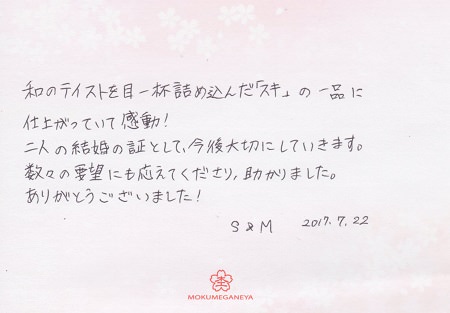 和のテイストを目一杯詰め込んだ「スキ」の一品に
仕上がっていて感動!
二人の結婚の証として、今後大切にしていきます。
数々の要望にも応えてくださり、助かりました。
ありがとうございました!
S & M 2017.7.22
MOKUMEGANEYA